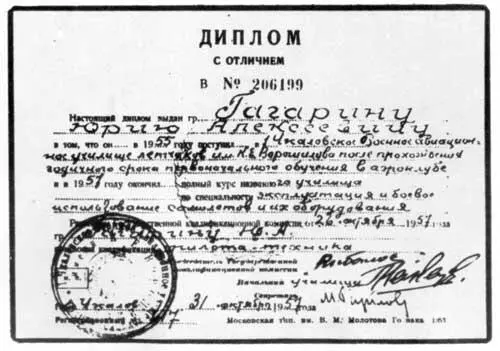 ДИПЛОМ
С ОТЛИЧИЕМ
В № 206199
Настоящий диплом выдан гр. Гагарину
Юрию Алексеевичу
в том, что он в 1955 году поступил в Чкаловское Военноеавиацион-
ное училище летчиков им. К.Е. Ворошилова после прохождения
годичного срока первоначального обучения в аэроклубе
и в 1957 году окончил полный курс названого училища
по специальности эксплуатация и боевое
использование самолетов и их оборудования
квалификационной комиссии от 26 октября 1957
Ю.А.
пилота-техника
Государственной
квалификационной комиссии
Начальник училища
Секретарь
г. Чкалов 31 октября 1957 года
Московская тип. им. В. М. Молотова